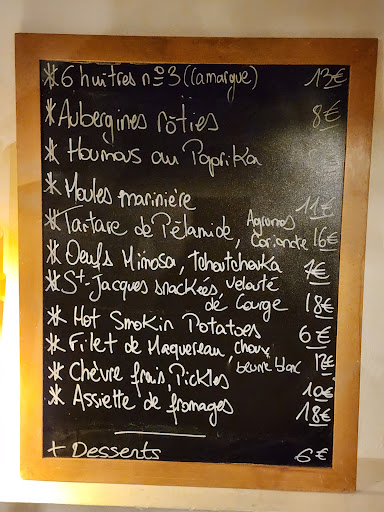 * 6 huîtres n°3 (Camargue) 13€
* Aubergines rôties 8€
* Houmous au Paprika
* Moules marinière 11€
* Tartare de Pélamide, Agrumes
Coriandre 16€
* Oeufs Mimosa, Tchoutchouka 7€
* St-Jacques snackées, velouté
de Courge 18€
* Hot Smokin Potatoes 6€
* Filet de Maquereau, choux
beurre blanc 17€
* Chèvre frais, Pickles 10€
* Assiette de fromages 18€
+ Desserts 6€